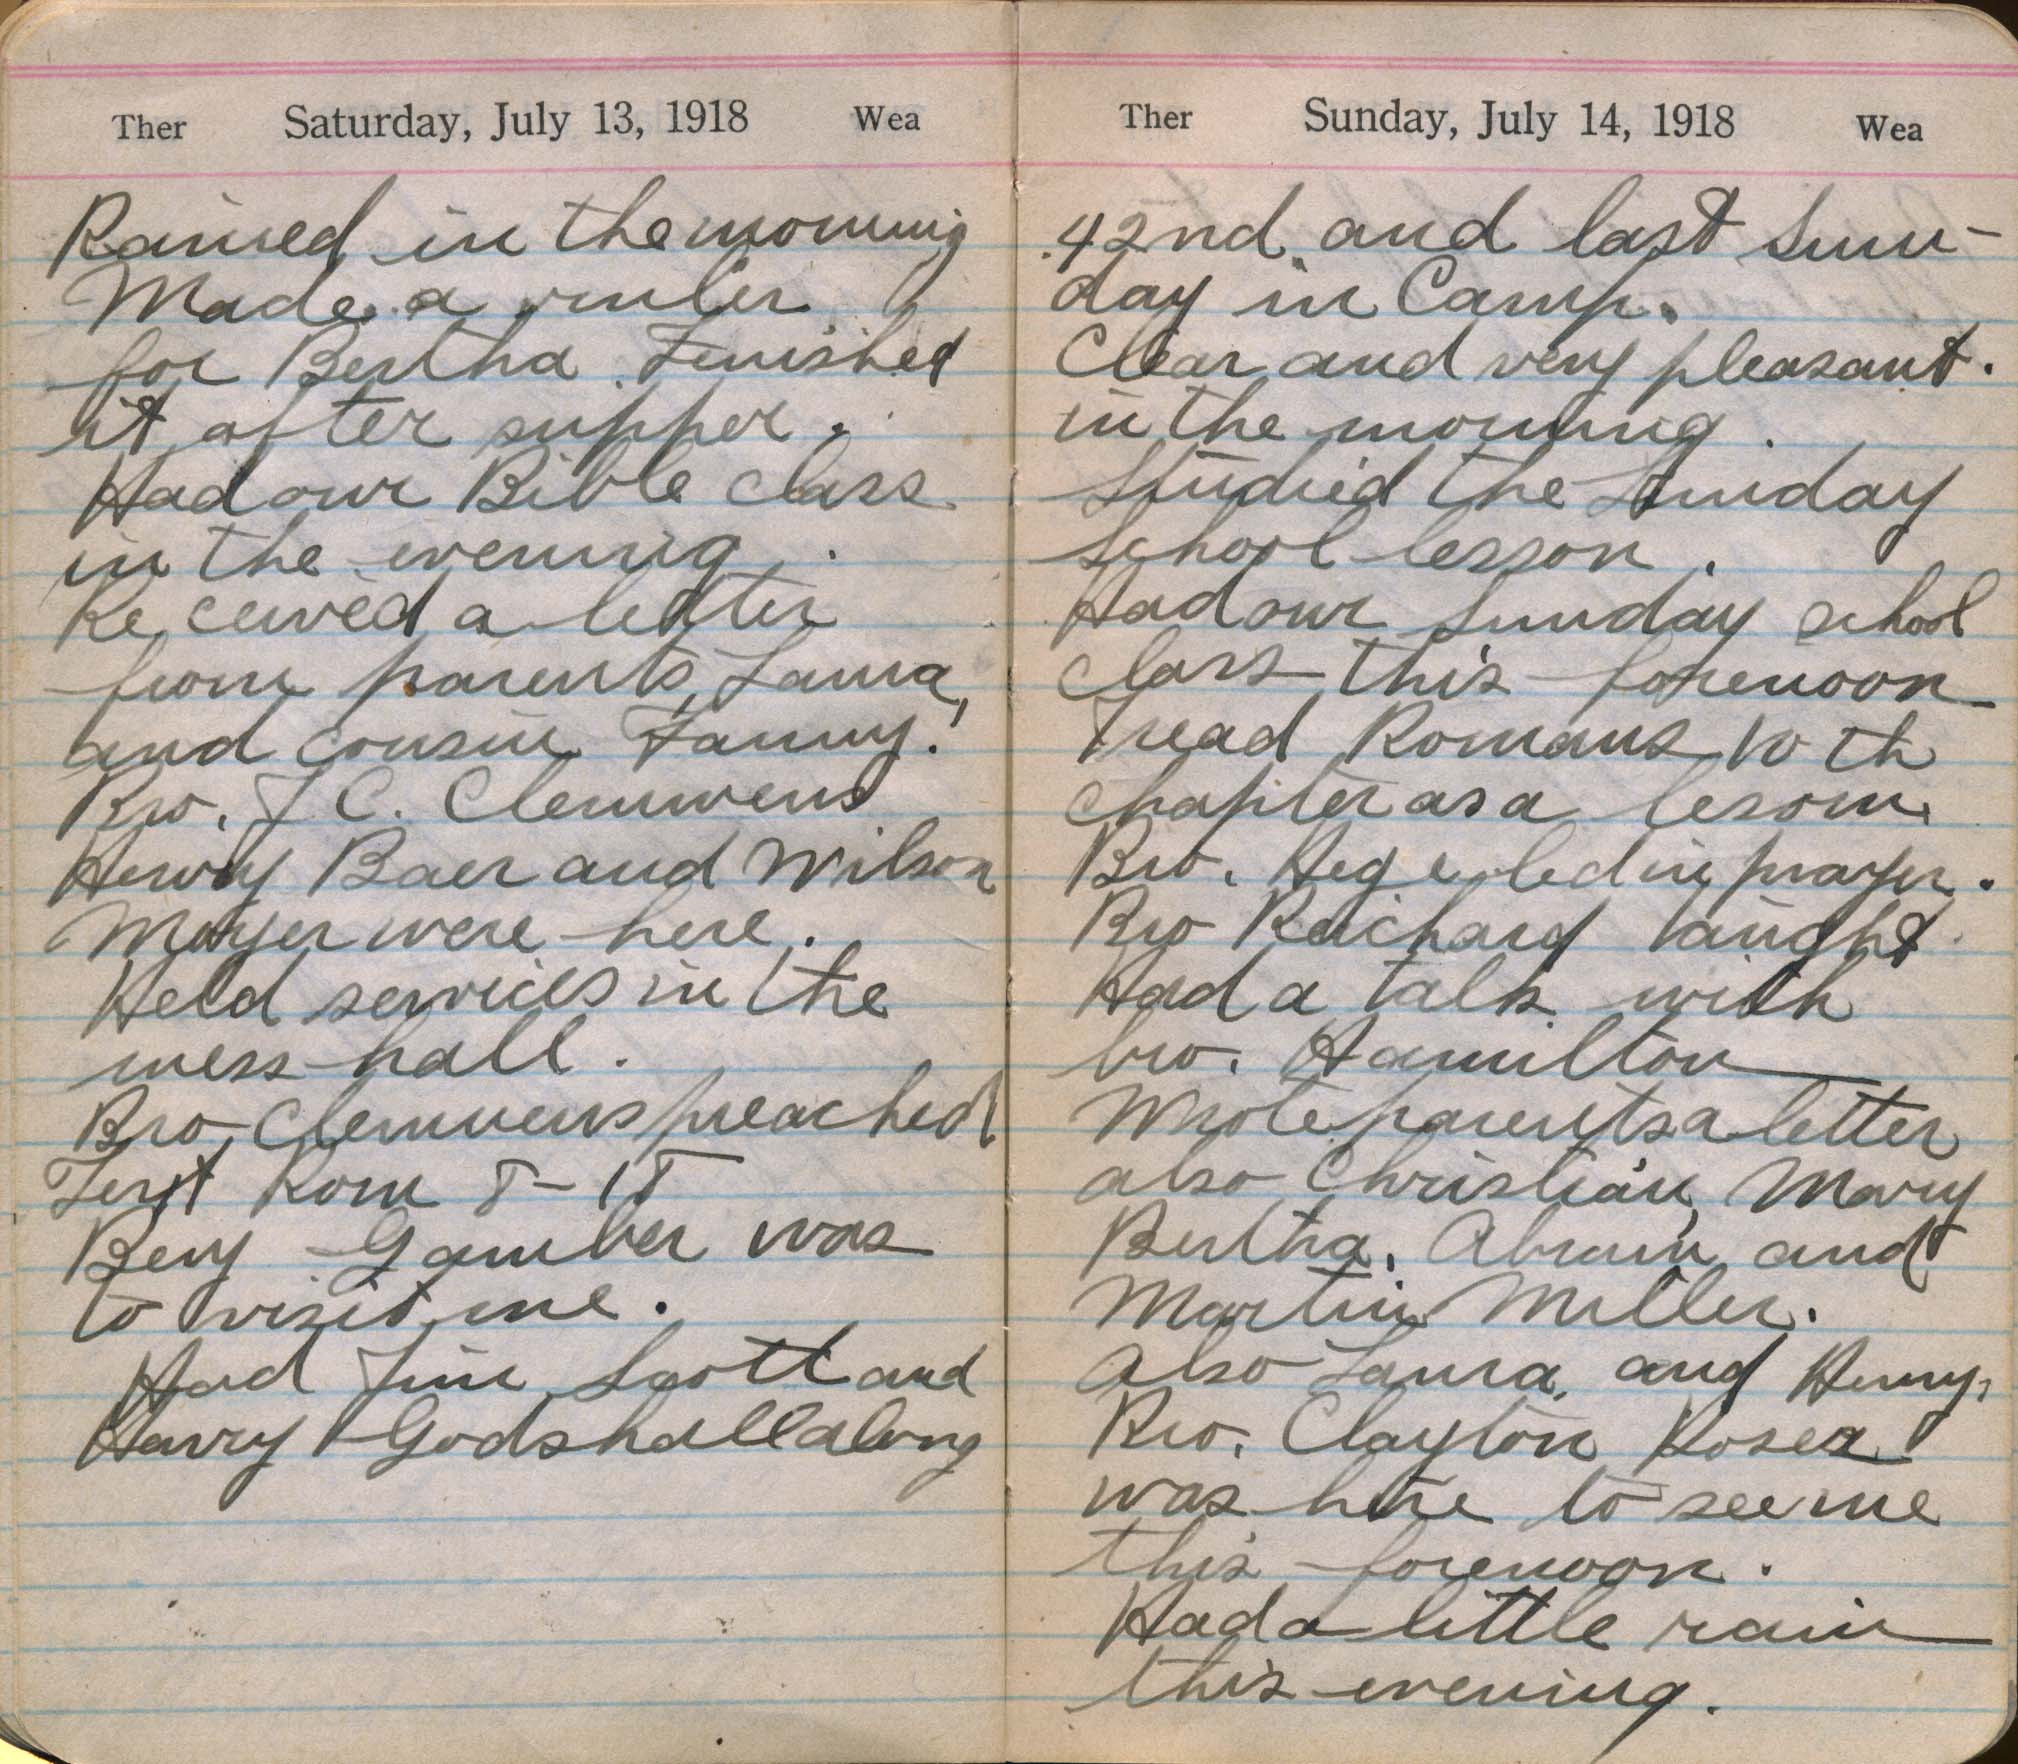 Ther Saturday, July 13, 1918 Wea
Rained in the morning
Made a ruler
for Bertha. Finished
it after supper.
Had our Bible class
in the evening.
Received a letter
from parents, Laura,
and cousin Fanny.
Bro. J C. Clemmens
Henry Baer and Wilson
Moyer were here.
Held services in the
mess-hall.
Bro. Clemmens preached
Text Rom 8-18
Benj Gamber was
to visit me.
Had Jim Scott and
Harry Godshall along
Ther Sunday, July 14, 1918 Wea
42nd and last Sun-
day in Camp.
Clear and very pleasant.
in the morning.
Studied the Sunday
School lesson.
Had our Sunday school
class this forenoon
I read Romans 10th
chapter as a lesson.
Bro. Hege led in prayer.
Bro Reichard taught.
Had a talk with
bro. Hamilton
Wrote parents a letter
also Christian, Mary
Bertha, Abram and
Martin Miller.
Also Laura, and Henry,
Bro. Clayton Roser
was here to see me
this forenoon.
Had a little rain
this evening.